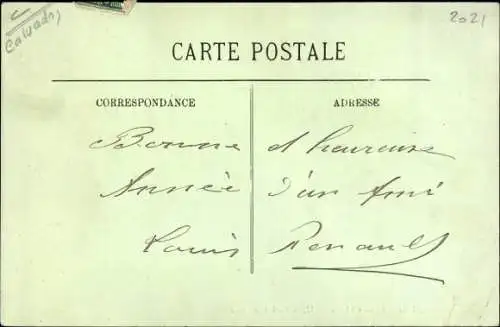 Calvados
2021
CARTE POSTALE
CORRESPONDANCE
ADRESSE
Bonne et heureuse
Année d'un Ami
Louis Renault